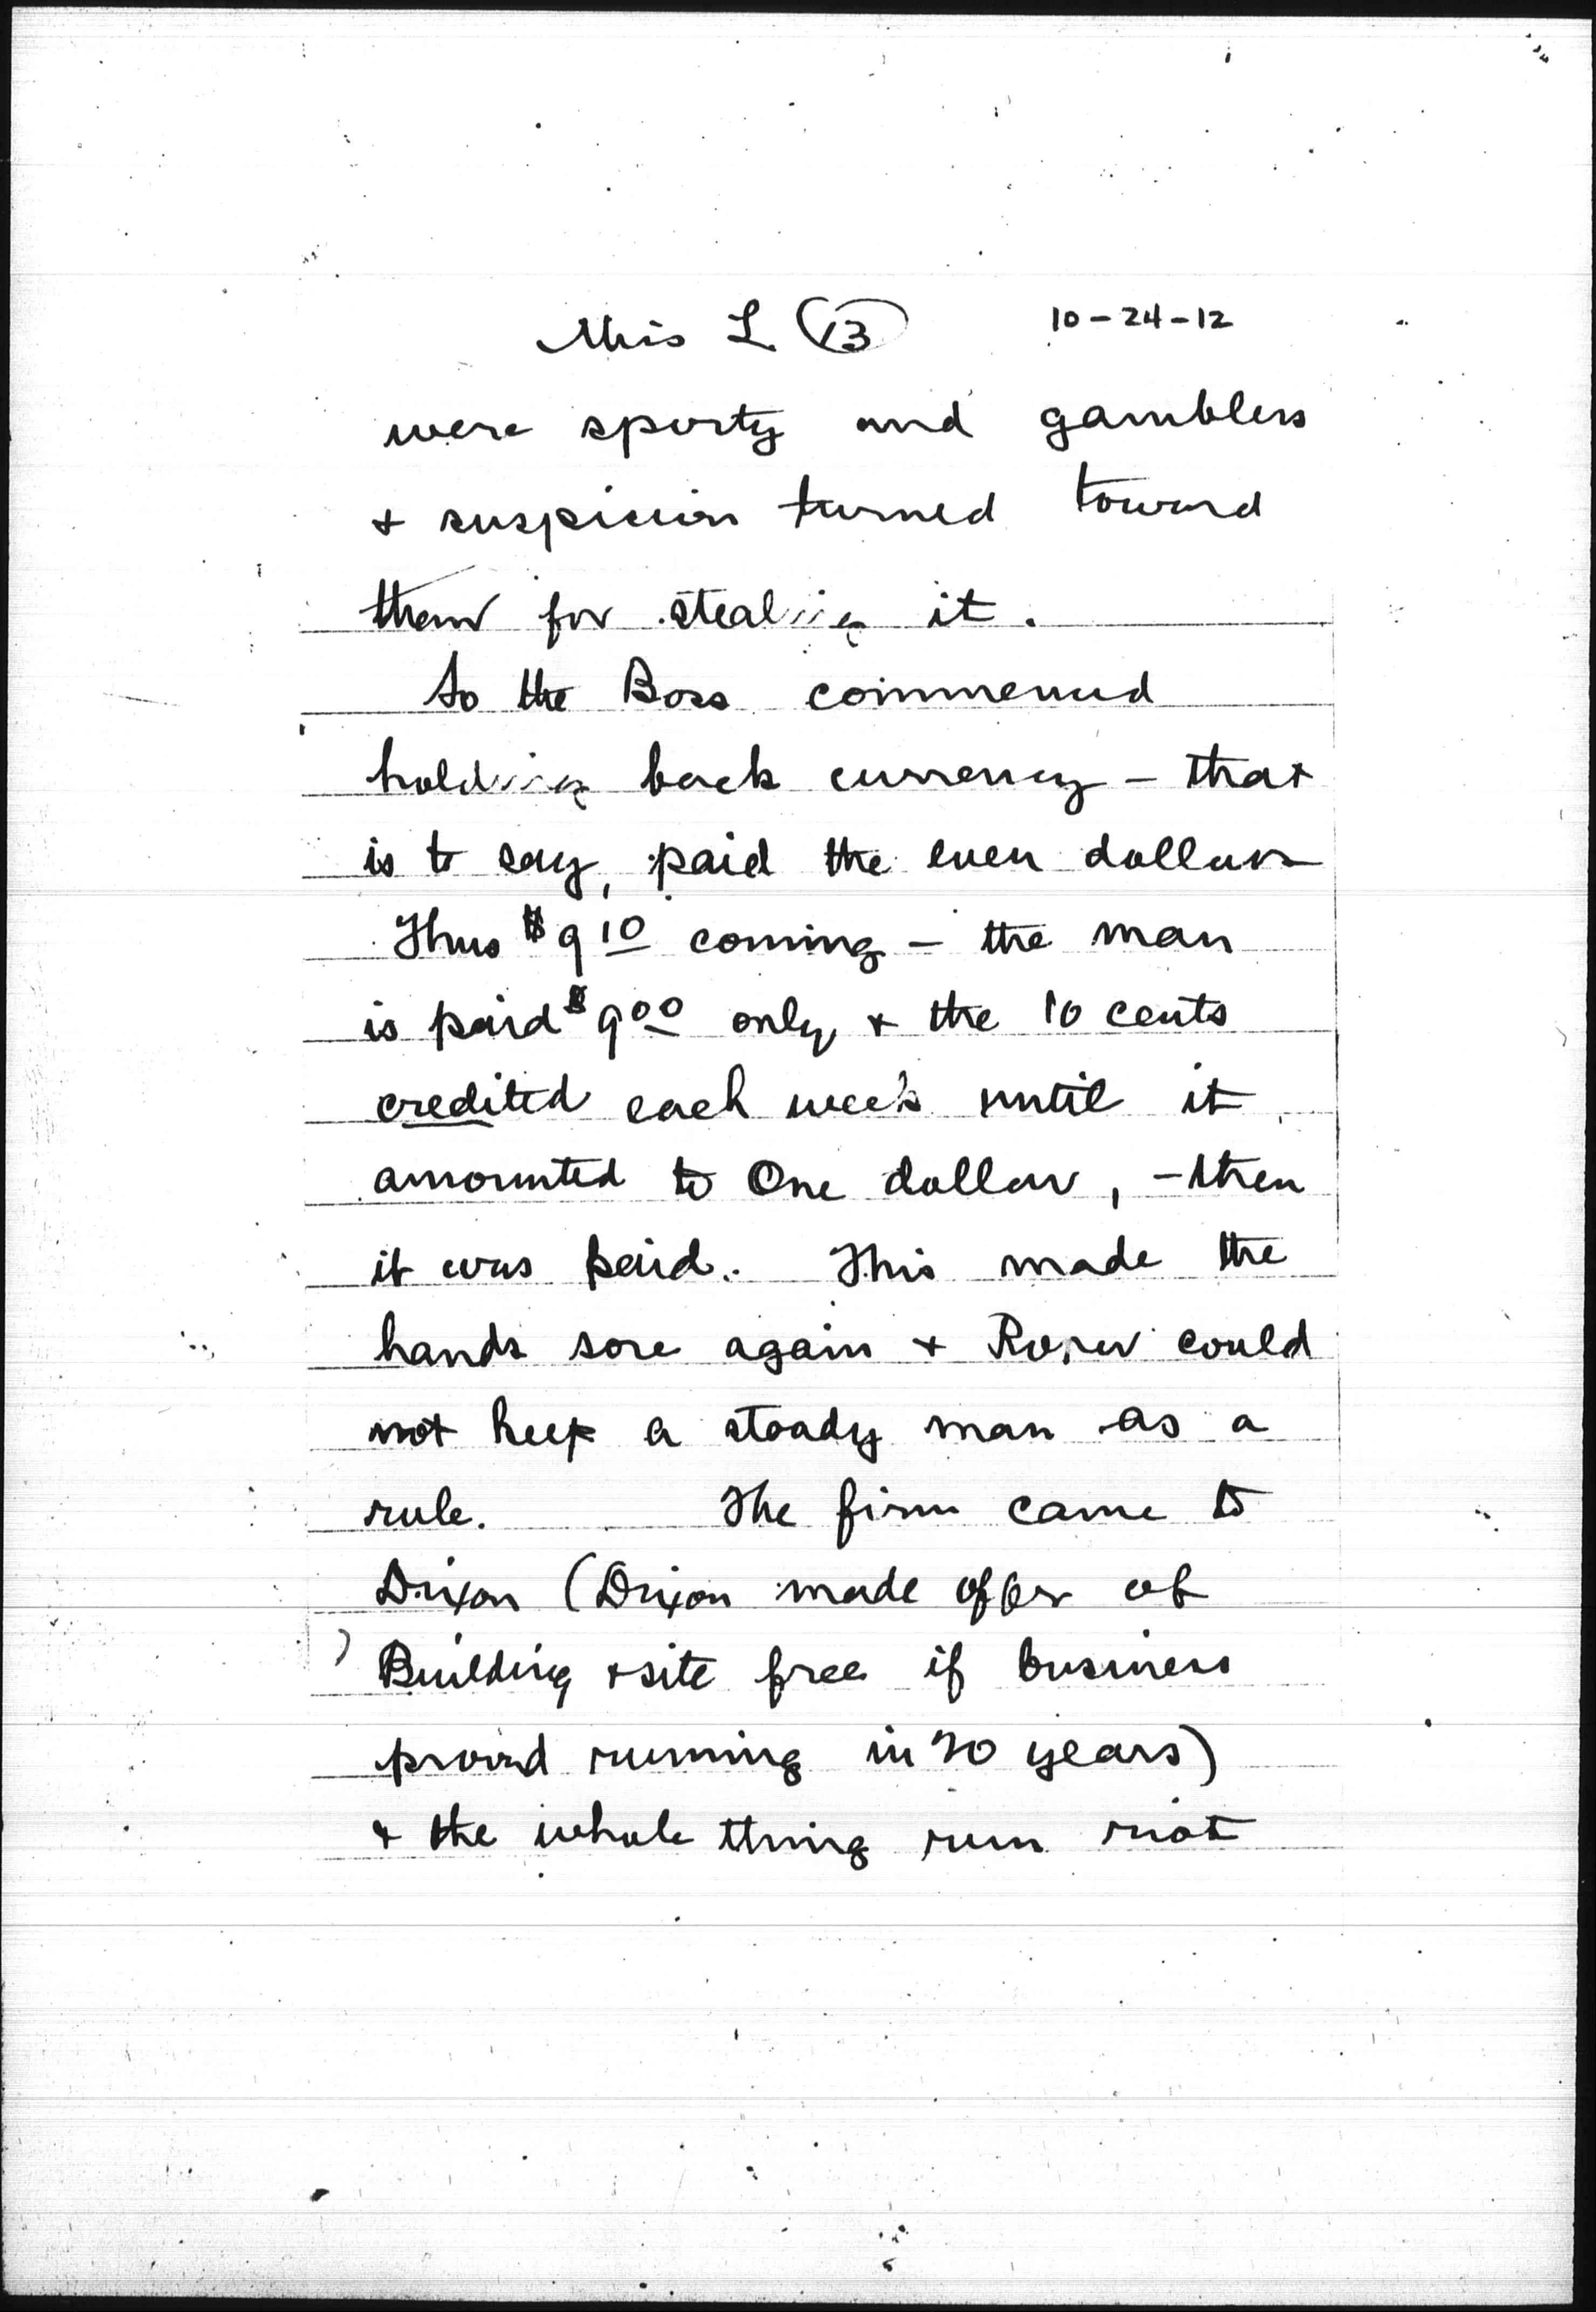 Miss L. 13 10-24-12
were sporty and gamblers
+ suspicion turned toward
them for stealing it.
So the Boss commenced
holding back currency - that
is to say, paid the even dollars
Thus $9 10 coming - the man
is paid $9 00 only, + the 10 cents
credited each week until it
amounted to One dollar, - then
it was paid. This made the
hands sore again + Roper could
not keep a steady man as a
rule. The firm came to
Dixon (Dixon made offer of
Building + site free if business
proved running in 20 years)
+ the whole thing run riot